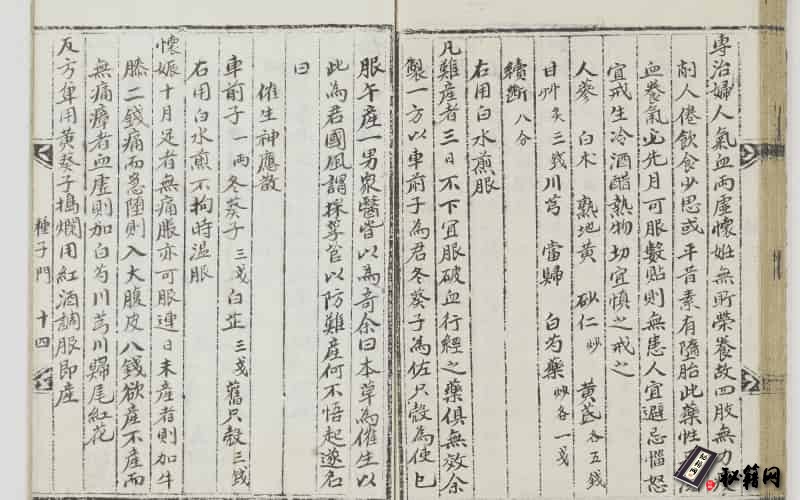 專治婦人氣血兩虛懷姙無所榮養故四肢無力
削人倦飲食少思或平昔素有墮胎此藥性
血養氣安先月可服數貼則無患人宜避忌惱怒
宜戒生冷酒醋熱物切宜慎之戒之
人參 白朮 熟地黃 砂仁炒 黃芪各五錢
甘艸炙三戔川芎 當歸 白芍藥炒各一戔
續斷八分
右用白水煎服
凡難產者三日不下宜服破血行經之藥俱無效余
製一方以車前子為君冬葵子為佐只殼為使已
服午產一男衆醫皆以為奇余曰本草為催生以
此為君國風謂採芣苢以防難產何不悟起遂名
曰
催生神應散
車前子一兩冬葵子三戔白芷三戔舊只殼三錢
右用白水煎不拘時温服
懷娠十月足者無痛脹亦可服連日未產者則加牛
膝二錢痛而急墮則入大腹皮八錢欲產不產而
無痛瘠者血虛則加白芍川芎川歸尾紅花
又方隼用黃葵子搗爛用紅酒調服即產
種子門 十四
秘籍网